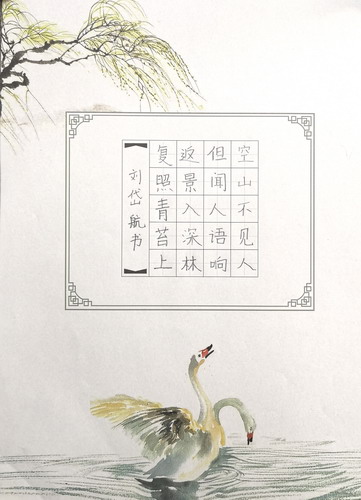 空山不见人
但闻人语响
返景入深林
复照青苔上
刘岱航书